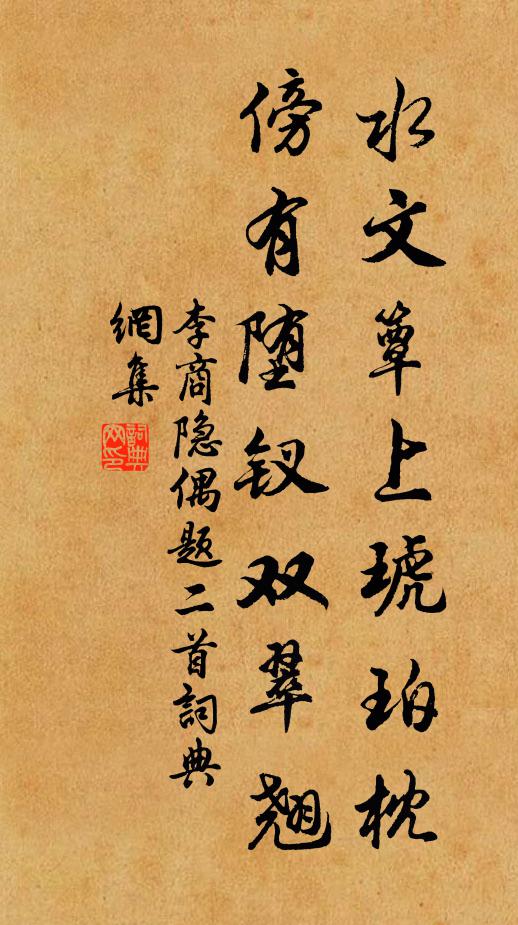 水文簟上琥珀枕
傍有堕钗双翠翘
李商隐偶题二首詞典
網集
詞典
网印